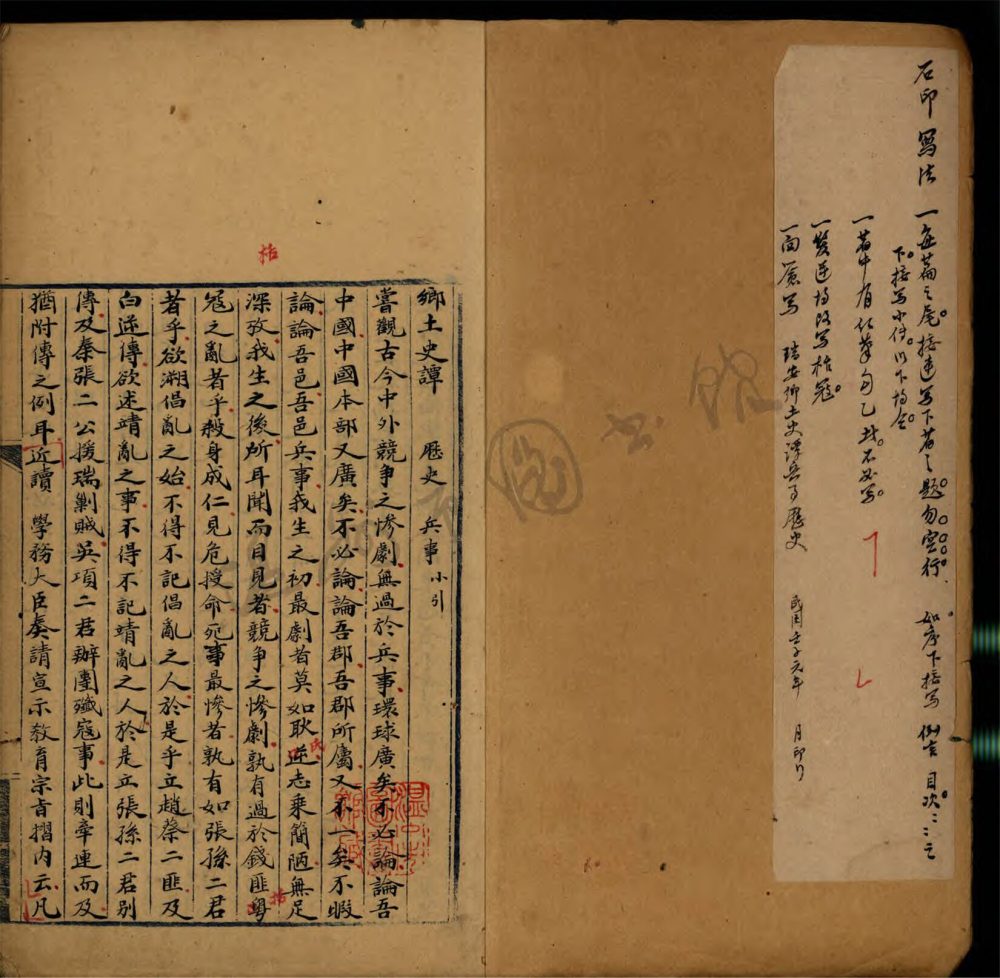 石印寫法
一每篇之尾接連寫下篇之題勿空行 如序下接寫例言目次
下接寫小付
一篇中有紅筆勾乙哉不必寫
一發逆均改寫粵寇
一面簽寫 瑞安鄉土史譚兵事歷史 民國壬子元年 月印行
館書圖
鄉土史譚 歷史 兵事小引
嘗觀古今中外競爭之慘劇無過於兵事環球廣矣不必論論吾
中國中國本部又廣矣不必論論吾郡吾郡所屬又不一矣不暇
論論吾邑吾邑兵事我生之初最劇者莫如耿逆志乘簡陋無足
深攷我生之後所耳聞而目見者競爭之慘劇孰有過於錢匪粵
寇之亂者乎殺身成仁見危授命死事最慘者孰有如張孫二君
者乎欲溯倡亂之始不得不記倡亂之人於是乎立趙蔡二匪及
白逆傳欲述靖亂之事不得不記靖亂之人於是立張孫二君別
傳及秦張二公援瑞剿賊吳項二君辦團殲寇事此則牽連而及
猶附傳之例耳近讀 學務大臣奏請宣示教育宗旨摺內云凡